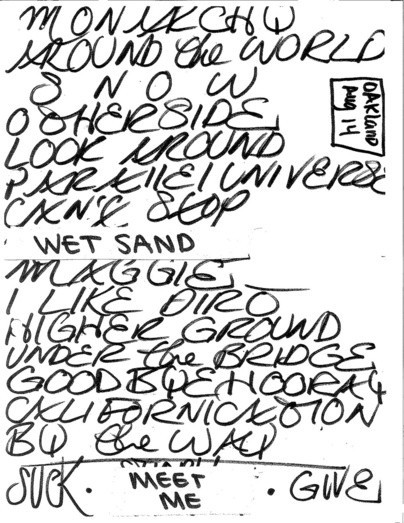 MONARCHY
AROUND the WORLD
SNOW
OTHERSIDE
OAKLAND
AUG 14
LOOK AROUND
PARALLEL UNIVERSE
CAN'T STOP
WET SAND
MAGGIE
I LIKE DIRT
HIGHER GROUND
UNDER the BRIDGE
GOODBYE HOORAY
CALIFORNICATION
BY the WAY
SUCK · MEET ME · GIVE